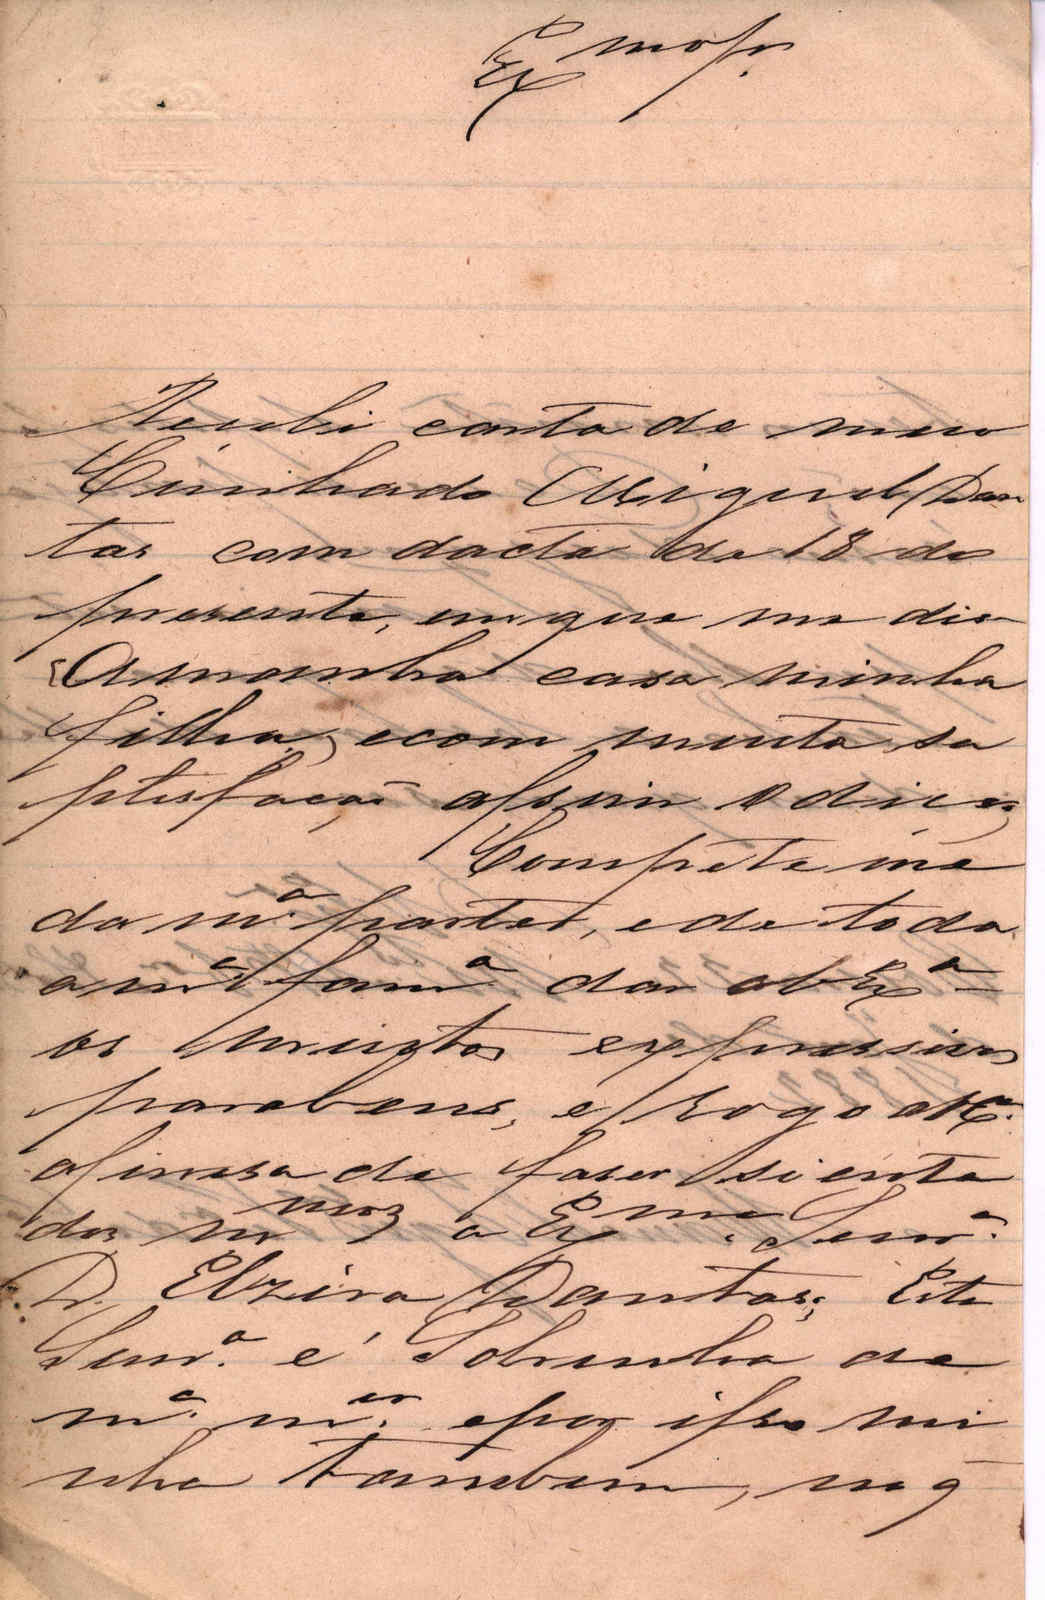 Exmo Sr.
Recebi carta de meu
Cunhado Miguel Dan
tas com dacta de 18 do
presente, em que me dis
Amanha casa minha
filha, e com muita sa
ptisfação assim o dice,
Compete me
da m.a parte, e de toda
a m.a fam.a dar a V Ex.a
os muitos expressivos
parabens, e rogo a V Ex.a
a finesa de faser siente
dos m mos a Exma Senr.a
D. Elzira Dantas; Esta
Senr.a é Sobrinha de
m.a m.er e por isso mi
nha tambem, no q